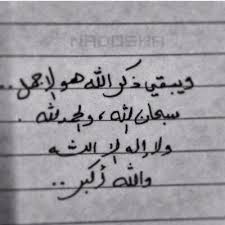 ويبقي ذكر الله هو لاجمل..
سبحان الله، والحمد لله.
ولا إله إلا الله
والله أكبر..